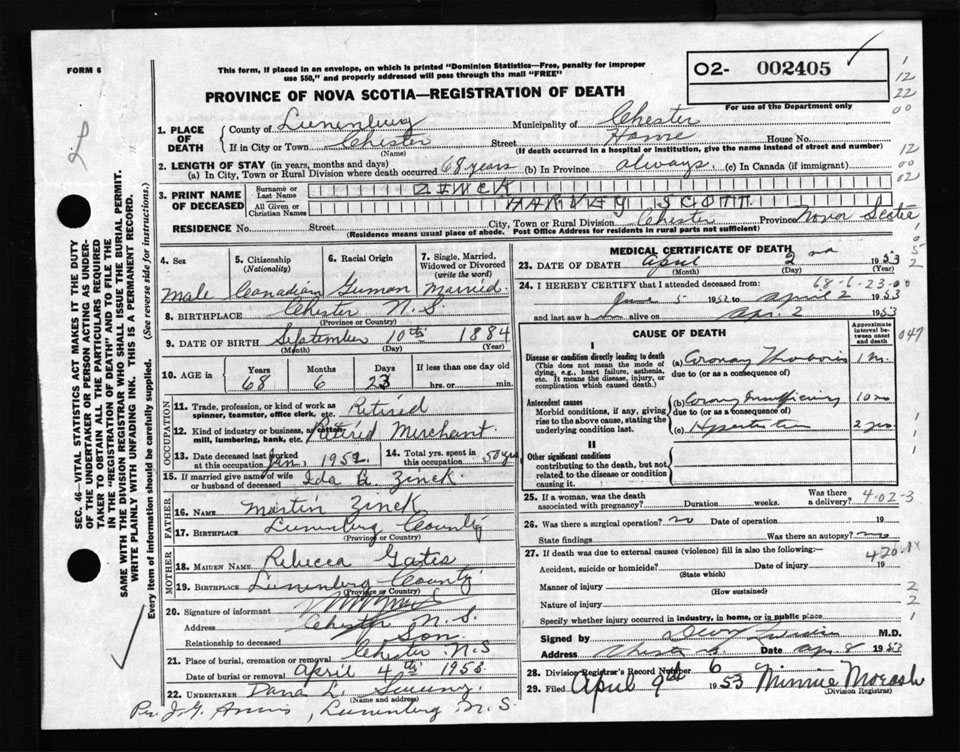 FORM 6
This form, if placed in an envelope, on which is printed "Dominion Statistics—Free, penalty for improper use $50," and properly addressed will pass through the mail "FREE"
O2- 002405
For use of the Department only
PROVINCE OF NOVA SCOTIA—REGISTRATION OF DEATH
1. PLACE OF DEATH
County of Lunenburg Municipality of Chester
If in City or Town Chester Street Home House No.
(Name) (If death occurred in a hospital or institution, give the name instead of street and number)
2. LENGTH OF STAY (in years, months and days)
(a) In City, Town or Rural Division where death occurred 68 years (b) In Province always (c) In Canada (if immigrant)
3. PRINT NAME OF DECEASED
Surname or Last Name ZINCK
All Given or Christian Names HARVEY SCOTT
RESIDENCE No. Street City, Town or Rural Division Chester Province Nova Scotia
(Residence means usual place of abode. Post Office Address for residents in rural parts not sufficient)
4. Sex Male
5. Citizenship (Nationality) Canadian
6. Racial Origin German
7. Single, Married, Widowed or Divorced (write the word) Married
8. BIRTHPLACE Chester N.S.
(Province or Country)
9. DATE OF BIRTH September 10th 1884
(Month) (Day) (Year)
10. AGE in Years 68 Months 6 Days 23 If less than one day hrs. or min.
OCCUPATION
11. Trade, profession, or kind of work as spinner, teamster, office clerk, etc. Retired
12. Kind of industry or business, as cotton mill, lumbering, bank, etc. Retired Merchant
13. Date deceased last worked at this occupation Jan. 1952 14. Total yrs. spent in this occupation 50 yrs
15. If married give name of wife or husband of deceased Ida A. Zinck
FATHER
16. NAME Martin Zinck
17. BIRTHPLACE Lunenburg County
(Province or Country)
MOTHER
18. MAIDEN NAME Rebecca Gates
19. BIRTHPLACE Lunenburg County
(Province or Country)
20. Signature of informant
Address Chester N.S.
Relationship to deceased Son
21. Place of burial, cremation or removal Chester N.S
Date of burial or removal April 4th 1953
22. UNDERTAKER Dana L. Sweeny
(Name and address)
Per J.G. , Lunenburg N.S.
MEDICAL CERTIFICATE OF DEATH
23. DATE OF DEATH April 2nd 1953
(Month) (Day) (Year)
68-6-23-00
24. I HEREBY CERTIFY that I attended deceased from:
June 5 1952 to April 2 1953
and last saw h alive on Apr. 2 1953
CAUSE OF DEATH
Approximate interval between onset and death
I
Disease or condition directly leading to death
(This does not mean the mode of dying, e.g., heart failure, asthenia, etc. It means the disease, injury, or complication which caused death.)
(a) Coronary Thrombosis
due to (or as a consequence of)
Antecedent causes
Morbid conditions, if any, giving rise to the above cause, stating the underlying condition last.
(b) Coronary Insufficiency 10 mo
due to (or as a consequence of)
(c) Hypertension 2 yrs
II
Other significant conditions
contributing to the death, but not related to the disease or condition causing it.
25. If a woman, was the death associated with pregnancy? Duration weeks. Was there a delivery? 4-02-3
26. Was there a surgical operation? no Date of operation 19
State findings Was there an autopsy? no
27. If death was due to external causes (violence) fill in also the following:— 420.1x
Accident, suicide or homicide? Date of injury 19
(State which)
Manner of injury
(How sustained)
Nature of injury
Specify whether injury occurred in industry, in home, or in public place
Signed by M.D.
Address Chester Date Apr. 8 1953
28. Division Registrar's Record Number 6
29. Filed April 9th 1953 Minnie Morash
(Division Registrar)
SEC. 46—VITAL STATISTICS ACT MAKES IT THE DUTY OF THE UNDERTAKER OR PERSON ACTING AS UNDERTAKER TO OBTAIN ALL THE PARTICULARS REQUIRED IN THE "REGISTRATION OF DEATH" AND TO FILE THE SAME WITH THE DIVISION REGISTRAR WHO SHALL ISSUE THE BURIAL PERMIT.
WRITE PLAINLY WITH UNFADING INK. THIS IS A PERMANENT RECORD.
Every item of information should be carefully supplied. (See reverse side for instructions.)
1
12
22
00
12
00
02
047
2
2
1